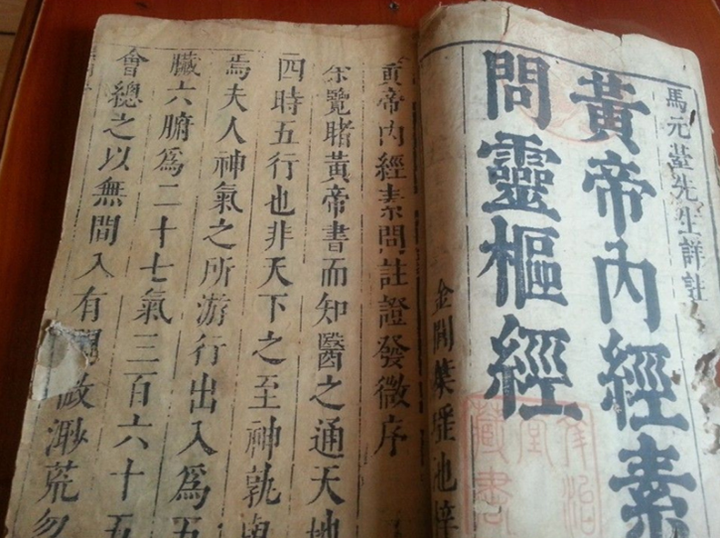 馬元臺先生詳註
黃帝內經素
問靈樞經
金閶
黃帝內經素問註證發微序
余覽睹黃帝書而知醫之通天地
四時五行也非天下之至神孰
焉夫人神氣之所游行出入爲五
臟六腑爲二十七氣三百六十五
會總之以無間入有間微渺荒忽
藏書